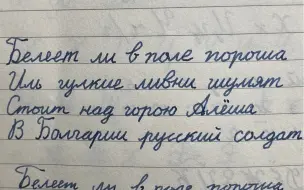 Белеет ли в поле пороша
Иль гулкие ливни шумят
Стоит над горою Алёша
В Болгарии русский солдат
Белеет ли в поле пороша